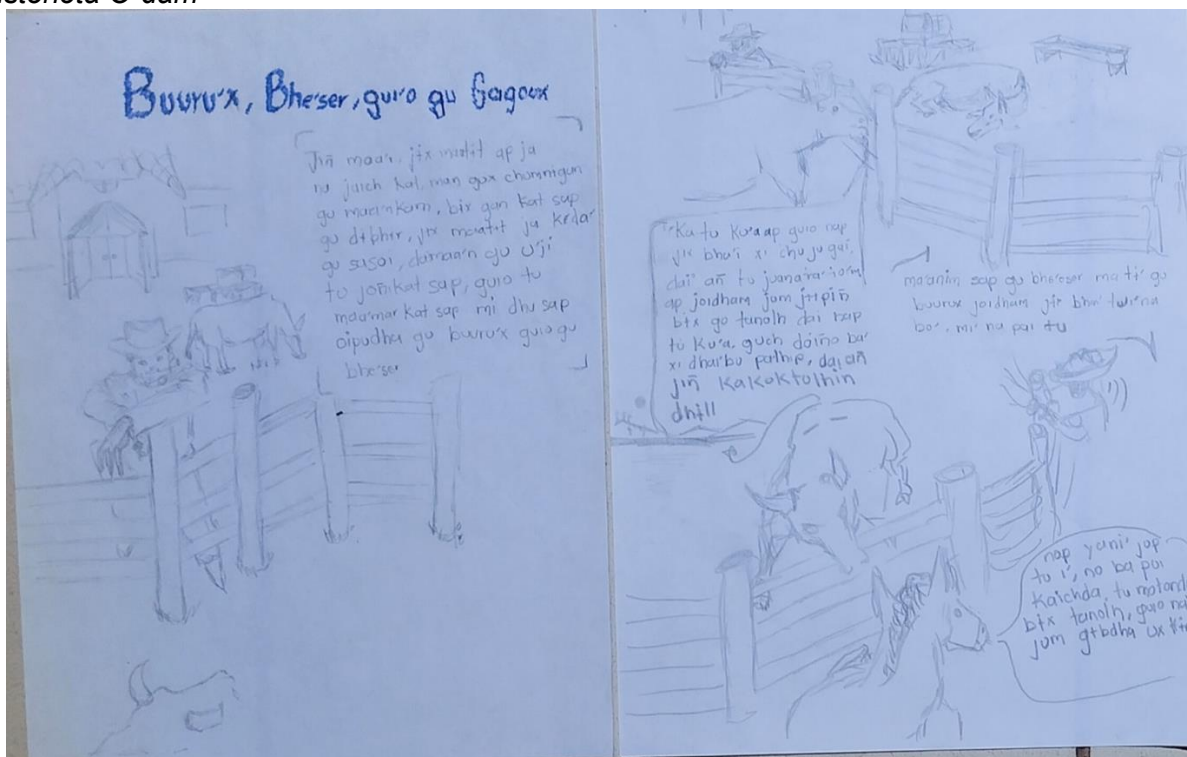 Buuru'x, Bhe'ser, guio gu Gagoox
Jiñ maa'n, jix maatit ap ja
na jaich kat, man gux chumnigun
gu maa'nkam, bix gan kat sap
gu dɨbhir, jix maatit ja kɨɨda'
gu susai, damaa'n gu u'ji
tu joñkat sap, guio tu
maa'mar kat sap mi dhu sap
oipudha gu buuru'x guio gu
bhe'ser
"Ka tu ku'aap guio nap
jix bha'i xi chu ju gai,
dai' añ tu juana'
ap joidham jum jɨɨpiñ
bɨx go tanolh dai bap
tu ku'a, guch doiño ba'
xi dhai'bu pathip, dai añ
jiñ kakoktolhin
dhɨll
ma'anim sap gu bhe'eser ma tɨ' gu
buurux joidham jix bhai'
bo', mi' na pai tu
nap yani' jap
tu i', no ba pui
kaichda, tu
bɨx tanolh, guio na
jum gɨbdha ux